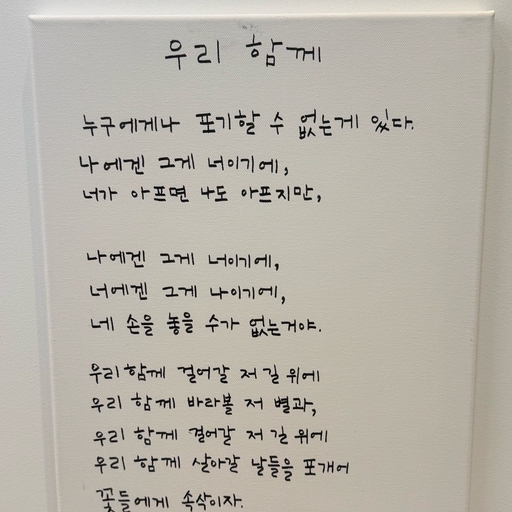 우리 함께
누구에게나 포기할 수 없는게 있다.
나에겐 그게 너이기에,
너가 아프면 나도 아프지만,
나에겐 그게 너이기에,
너에겐 그게 나이기에,
네 손을 놓을 수가 없는거야.
우리 함께 걸어갈 저 길 위에
우리 함께 바라볼 저 별과,
우리 함께 걸어갈 저 길 위에
우리 함께 살아갈 날들을 포개어
꽃들에게 속삭이자.